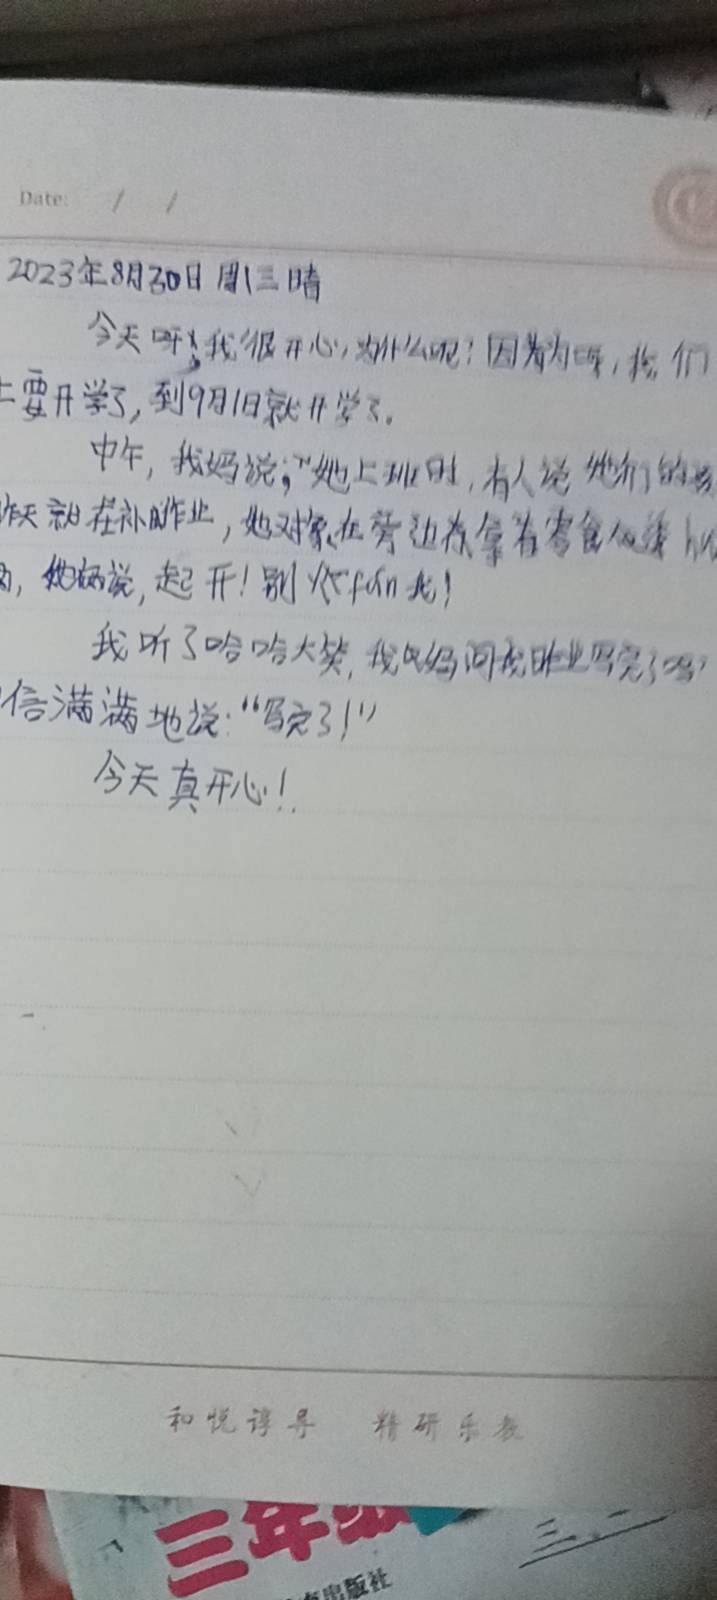 Date: / /
2023年8月30日 周三 晴
今天呀,我很开心,为什么呢?因为呀,我们
上要开学了,到9月1日就开学了。
中午,我妈说:“她上班时,有人说他们的孩
昨天就在补作业,她对象在旁边拿着零食
说,起开!别烦fán我!
我听了哈哈大笑,我妈问我作业写完了吗
信满满地说:“写完了!”
今天真开心!
和悦谆导 精研乐教
三年级
出版社